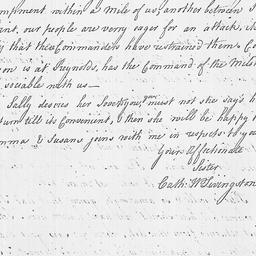 mpment within a Mile of us another between S
int, our people are verry eager for an attack, it
y that the Commanders have restrained them. Co
on is at Reynolds, has the Command of the Mile
sociable with us—
Sally desires her Love to you, you must not she say's h
turn till its Convenient, & then she will be happy t
mma & Susan joins with me in respects to you
Your Affectionate
Sister
Cath: W Livingston